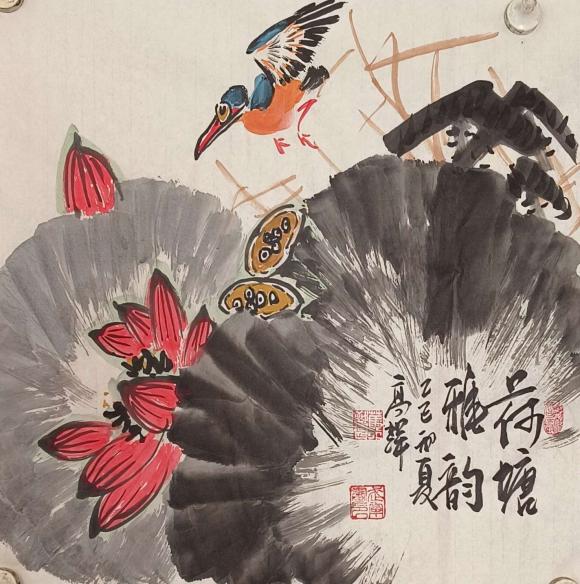 荷塘
雅韵
乙巳初夏
高辉